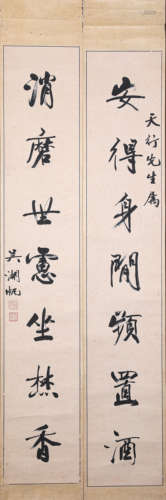 天行先生属
安得身閒頻置酒
消磨世慮坐焚香
吴湖帆